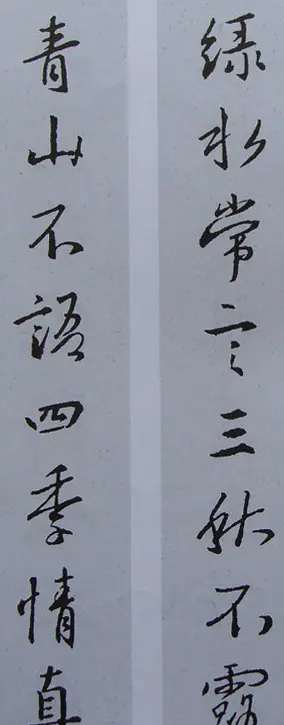 綠水常言三秋不露
青山不語四季情真